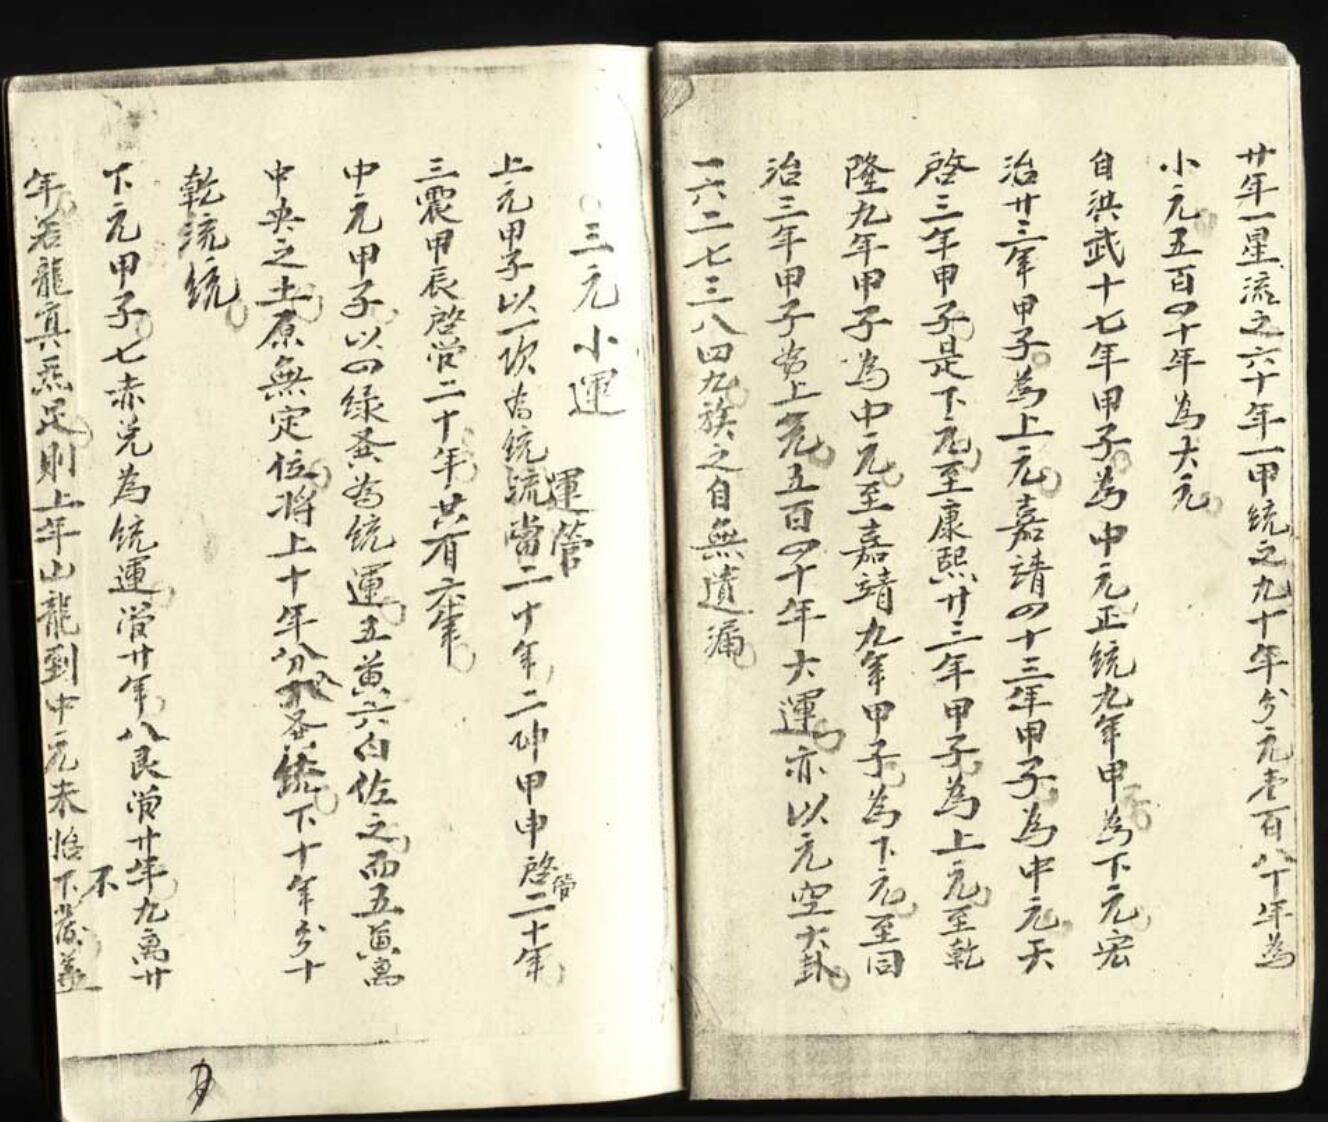 廿年一星流之六十年一甲統之九十年分元壹百八十年為
小元五百四十年為大元
自洪武十七年甲子為中元正統九年甲子為下元宏
治廿三年甲子為上元嘉靖四十三年甲子為中元天
啓三年甲子是下元至康熙廿三年甲子為上元至乾
隆九年甲子為中元至嘉靖九年甲子為下元至同
治三年甲子為上元五百四十年大運亦以元空大卦
一六二七三八四九族之自無遺漏
三元小運
運管
上元甲子以一坎為統流當二十年二坤甲申啓管二十年
三震甲辰啓管二十年共有六十年
中元甲子以四綠巽為統運五黃六白佐之而五黃寓
中央之土原無定位將上十年分巽各統下十年分十
乾流統
下元甲子七赤兌為統運管廿年八艮管廿年九离廿
年若龍真炁足則上年山龍到中元未怡下不發蓋